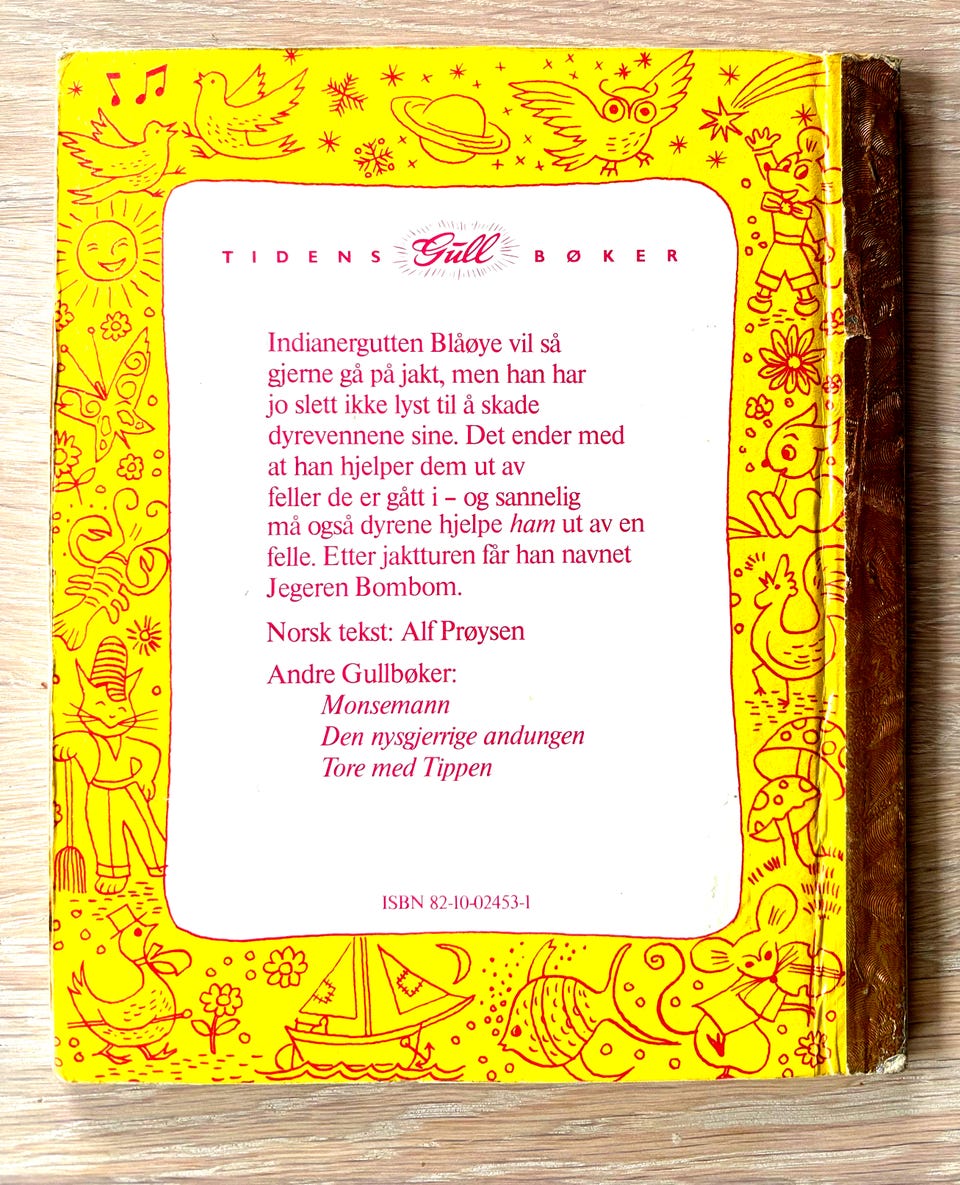 TIDENS Gull BØKER
Indianergutten Blåøye vil så
gjerne gå på jakt, men han har
jo slett ikke lyst til å skade
dyrevennene sine. Det ender med
at han hjelper dem ut av
feller de er gått i – og sannelig
må også dyrene hjelpe ham ut av en
felle. Etter jaktturen får han navnet
Jegeren Bombom.
Norsk tekst: Alf Prøysen
Andre Gullbøker:
Monsemann
Den nysgjerrige andungen
Tore med Tippen
ISBN 82-10-02453-1